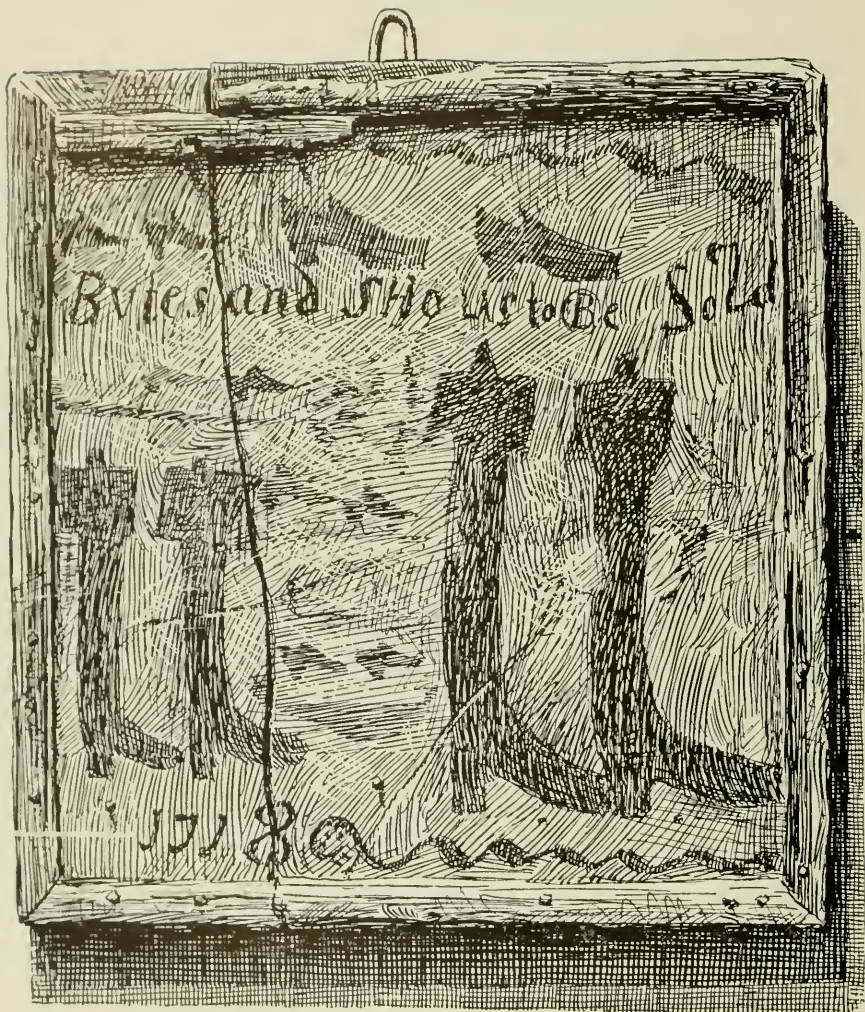 Bvtes and SHo us to Be Sold
1718